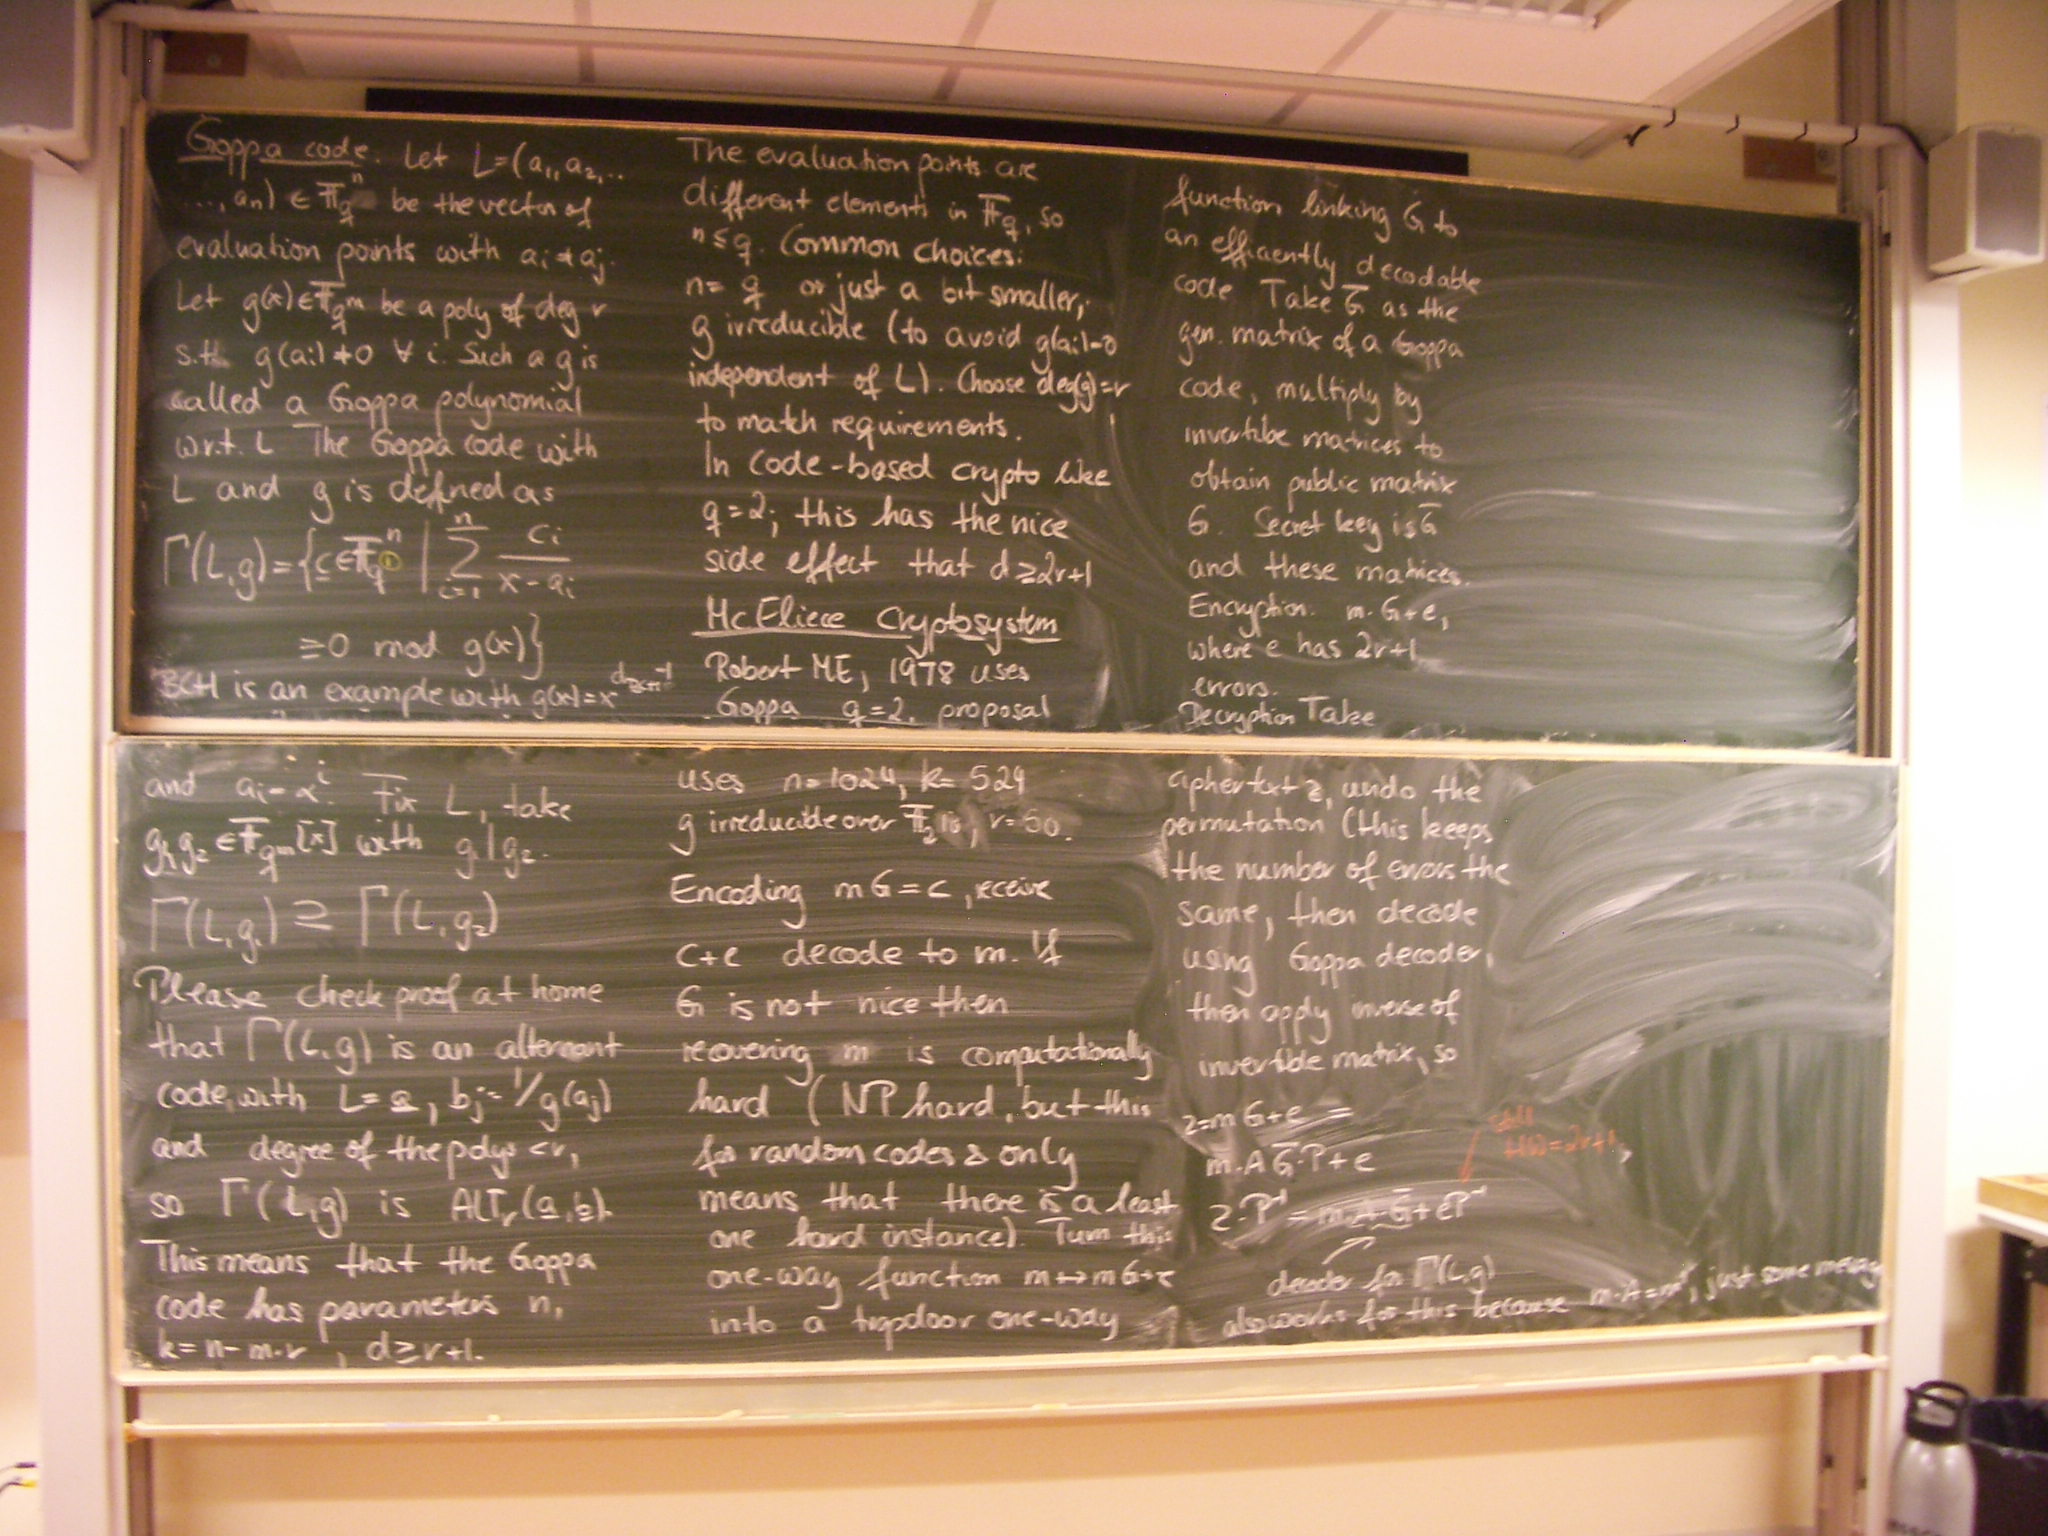 Goppa code. Let L=(a₁,a₂,..
...,aₙ) ∈ 𝔽_qⁿ be the vector of
evaluation points with aᵢ≠aⱼ.
Let g(x)∈𝔽_{q^m} be a poly of deg r
s.th. g(aᵢ)≠0 ∀ i. Such a g is
called a Goppa polynomial
w.r.t. L The Goppa code with
L and g is defined as
Γ(L,g)={c∈𝔽_qⁿ | Σ_{i=1}^n cᵢ/(x-aᵢ)
≡0 mod g(x)}
BCH is an example with g(x)=x^{d_{BCH}-1}
and aᵢ=αⁱ. Fix L, take
g₁,g₂∈𝔽_{q^m}[x] with g₁|g₂.
Γ(L,g₁) ⊇ Γ(L,g₂)
Please check proof at home
that Γ(L,g) is an alternant
code, with L=a, bⱼ=1/g(aⱼ)
and degree of the polys <r,
so Γ(L,g) is ALTᵣ(a,b).
This means that the Goppa
code has parameters n,
k=n-m·r, d≥r+1.
The evaluation points are
different elements in 𝔽_q, so
n≤q. Common choices:
n=q or just a bit smaller;
g irreducible (to avoid g(aᵢ)=0
independent of L). Choose deg(g)=r
to match requirements.
In code-based crypto like
q=2; this has the nice
side effect that d≥2r+1
McEliece Cryptosystem
Robert ME, 1978 uses
Goppa q=2, proposal
uses n=1024, k=524
g irreducible over 𝔽_{2^{10}}, r=50.
Encoding mG=c, receive
c+e decode to m. If
G is not nice then
recovering m is computationally
hard (NP hard, but this
for random codes & only
means that there is a least
one hard instance). Turn this
one-way function m↦mG+e
into a trapdoor one-way
function linking G to
an efficently decodable
code. Take G̅ as the
gen. matrix of a Goppa
code, multiply by
invertibe matrices to
obtain public matrix
G. Secret key is G̅
and these matrices.
Encryption: m·G+e,
where e has 2r+1
errors.
Decryption Take
ciphertext z, undo the
permutation (this keeps
the number of errors the
same, then decode
using Goppa decoder,
then apply inverse of
invertible matrix, so
z=mG+e =
m·AG̅·P+e
still
=2r+1,
z·P⁻¹=m·A·G̅+eP⁻¹
decoder for Γ(L,g)
also works for this because m·A=m', just some message